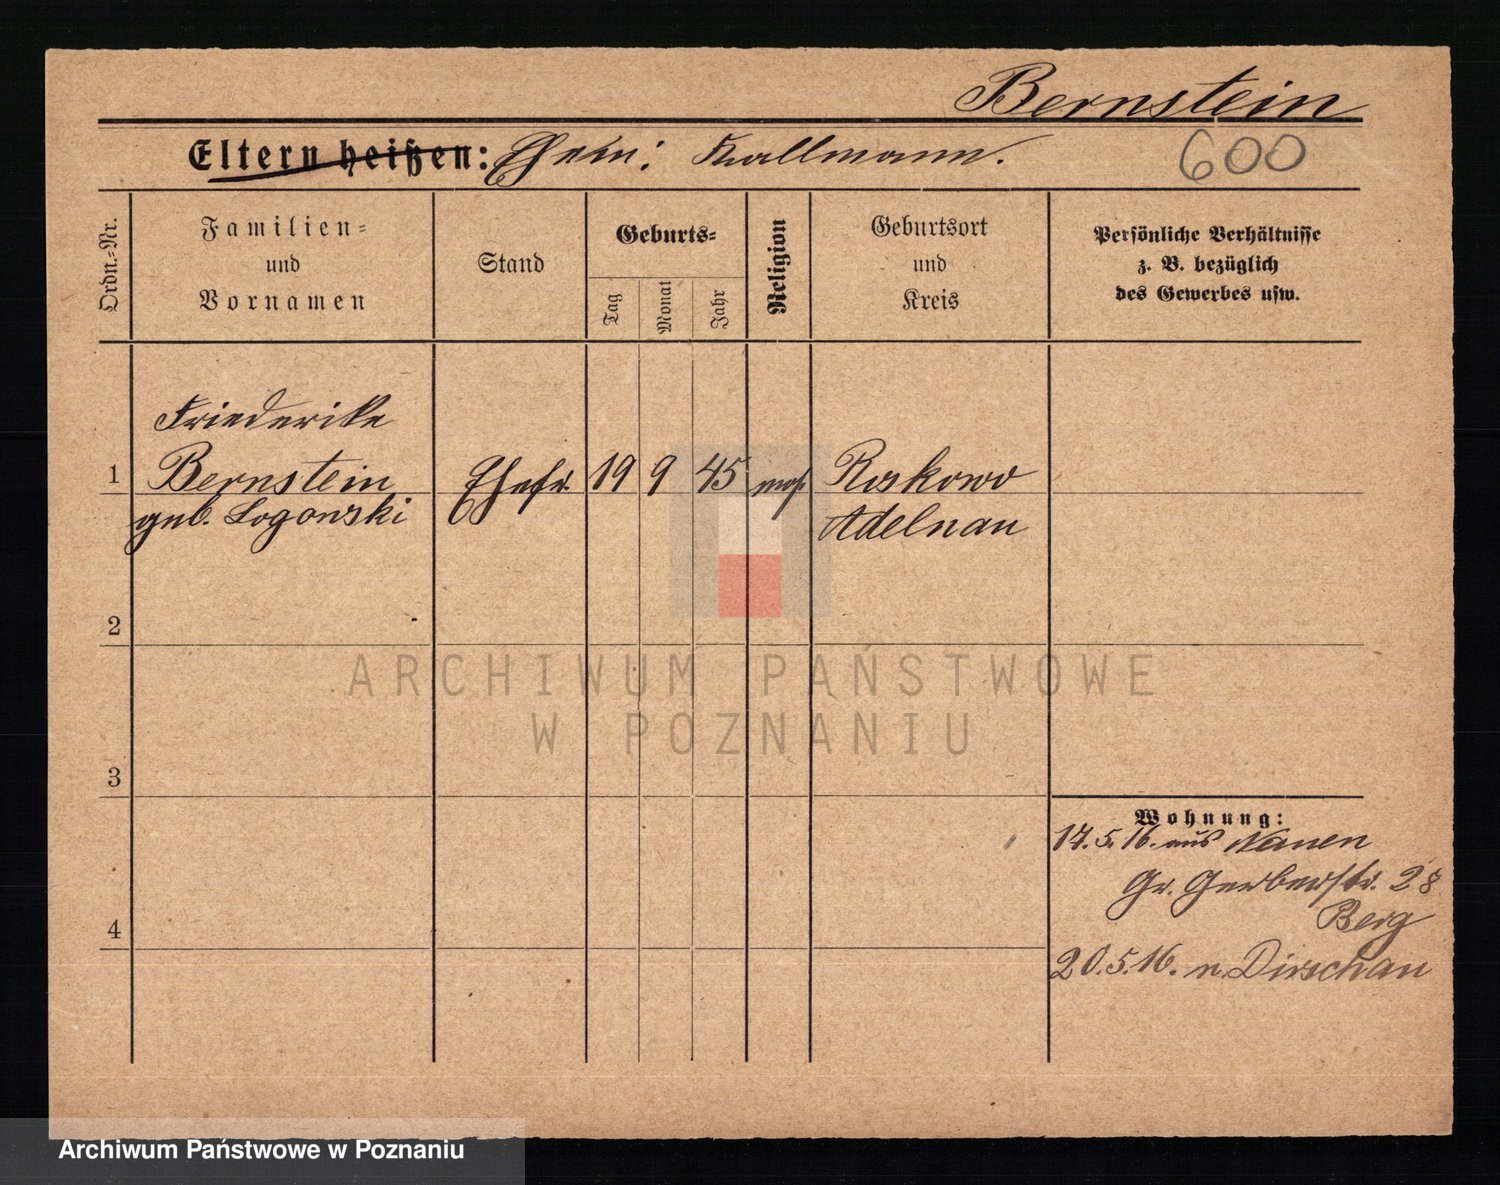 Bernstein
Eltern heißen: Ehem: Kallmann.
600
Ordn.-Nr.
Familien-
und
Vornamen
Stand
Geburts-
Tag
Monat
Jahr
Religion
Geburtsort
und
Kreis
Persönliche Verhältnisse
z. B. bezüglich
des Gewerbes usw.
Friederike
1 Bernstein Ehefr. 19 9 45 mos. Roskowo
geb. Logowski Adelnau
2
3
Wohnung:
17.5.16. aus Nauen
Gr. Gerberstr. 28
Berg
4
20.5.16. n. Dirschau
ARCHIWUM PAŃSTWOWE
W POZNANIU
Archiwum Państwowe w Poznaniu